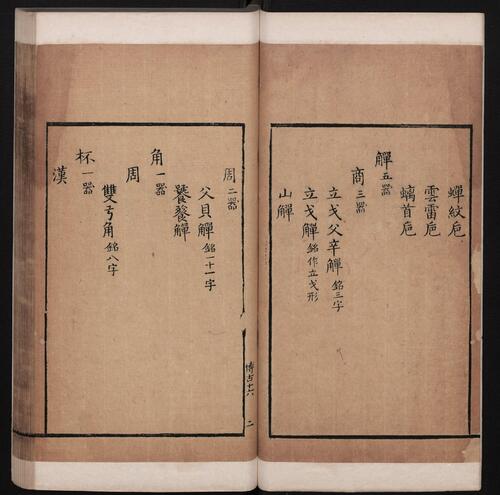 蟬紋卮
雲雷卮
螭首卮
觶五器
商三器
立戈父辛觶銘三字
立戈觶銘作立戈形
山觶
周二器
父貝觶銘一十一字
饕餮觶
角一器
周
雙弓角銘八字
杯一器
漢
博古十六 二